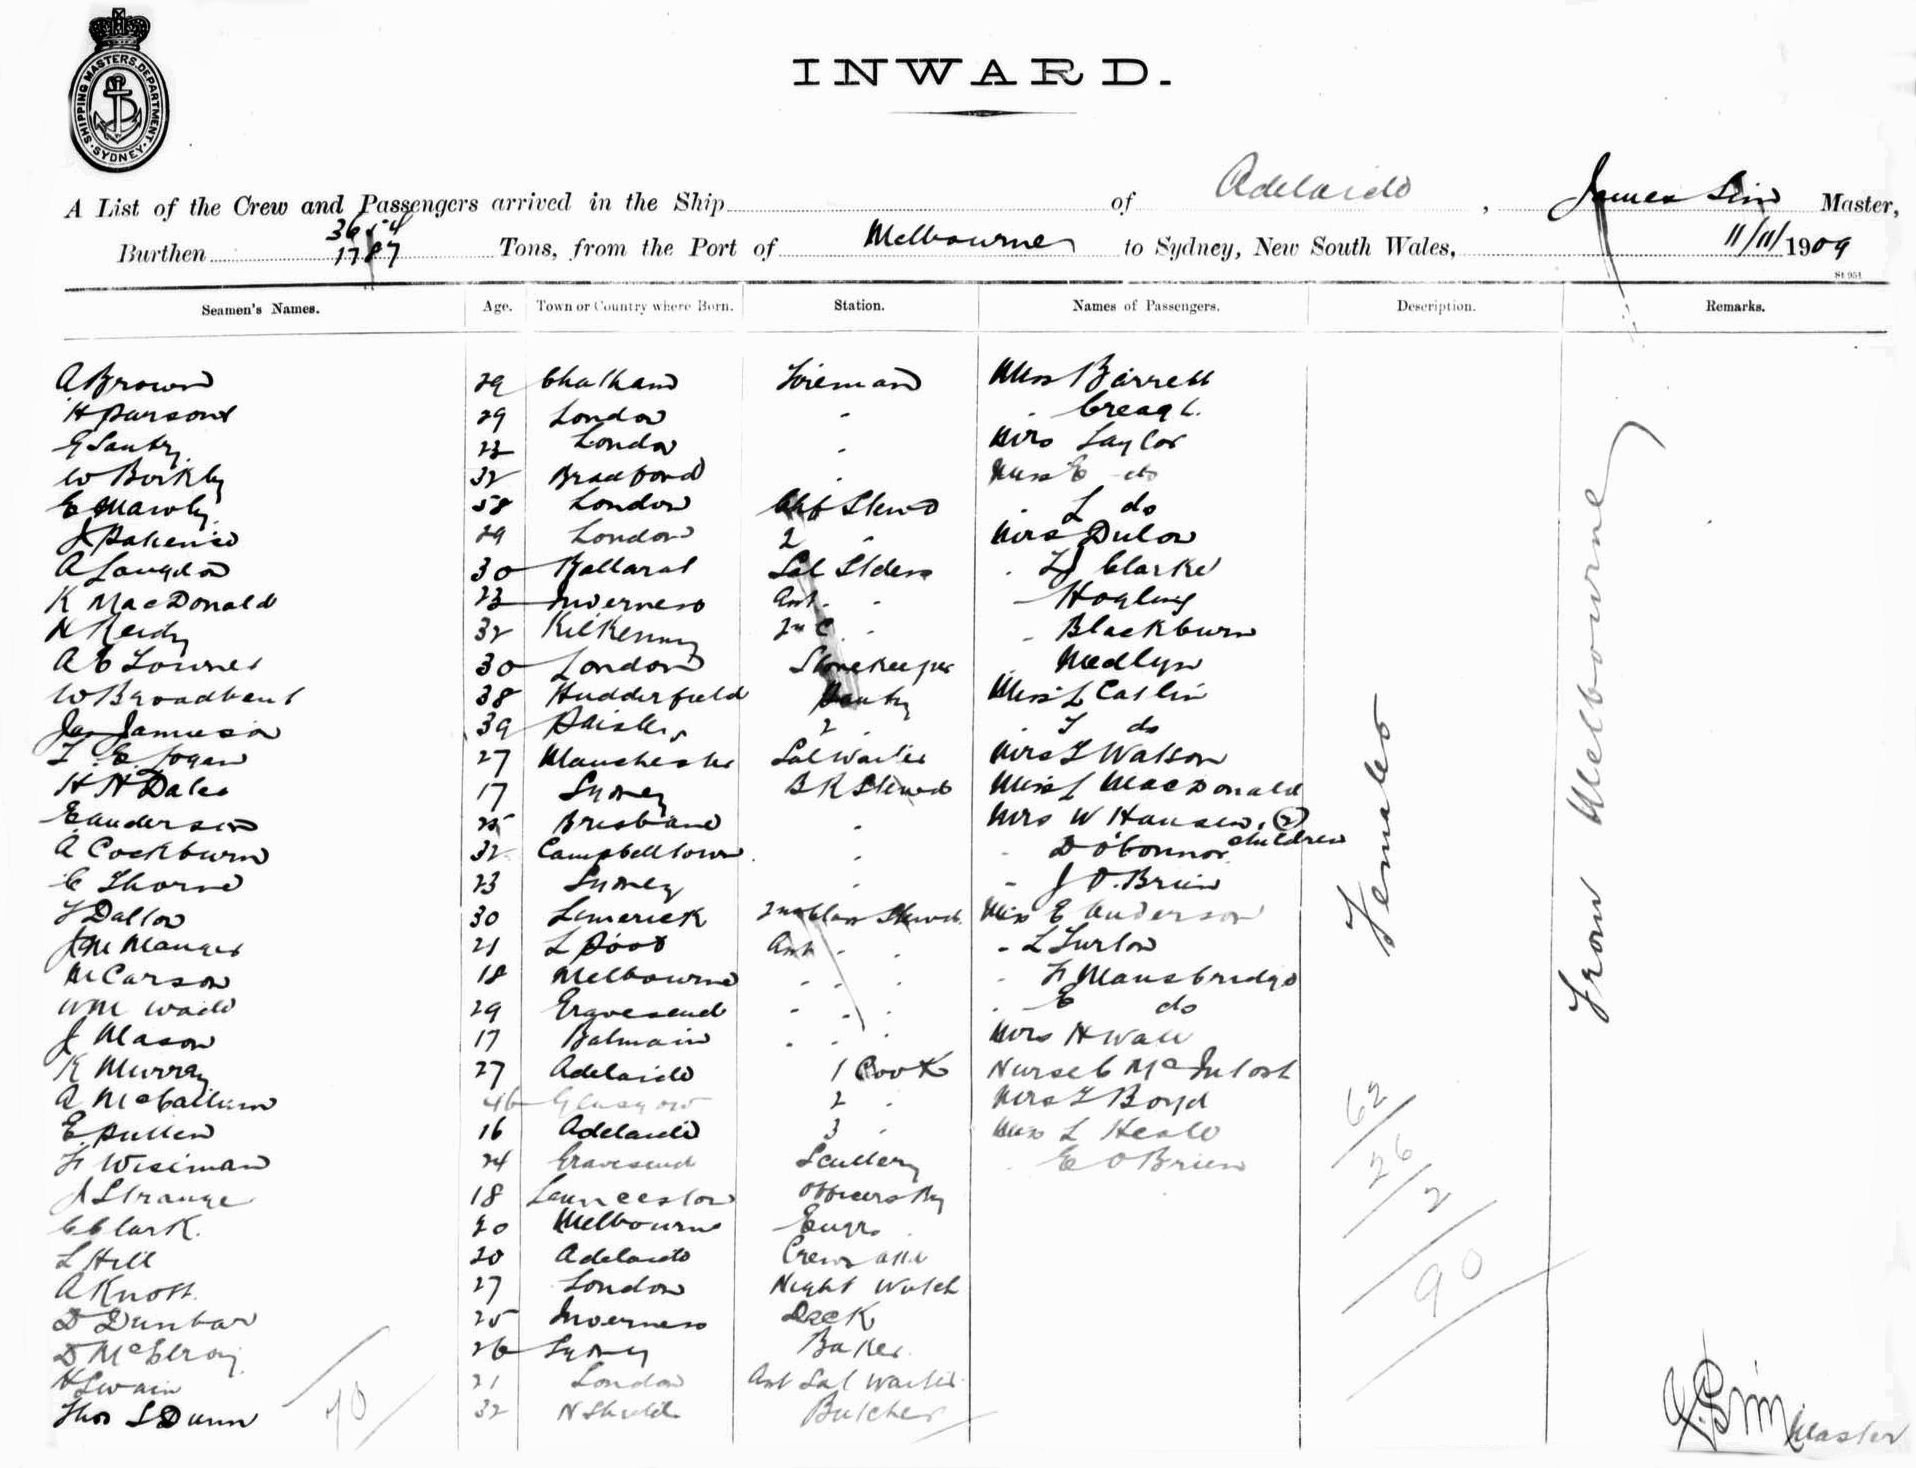 SHIPPING MASTERS DEPARTMENT SYDNEY
INWARD.
A List of the Crew and Passengers arrived in the Ship of Adelaide, James Sim Master,
3614
Burthen 1787 Tons, from the Port of Melbourne to Sydney, New South Wales, 11/11/1909
St 951
Seamen's Names. Age. Town or Country where Born. Station. Names of Passengers. Description. Remarks.
A Brown 29 Chatham Fireman Miss Barrett
H Parsons 29 London " " Creagh
London " Mrs Taylor
W Birkby 32 Bradford " Miss E do
E Mawby 58 London Chf Stewd " L do
29 London 2 " Mrs Dulow
A Langdon 30 Ballarat Sal Stdess " Clarke
K MacDonald 23 Inverness Asst " "
N Reidy 32 Kilkenny 2nd C " " Blackburn
A E Townes 30 London Storekeeper Medlyn
W Broadbent 38 Hudderfield Pantry Miss L Catlin
Jas Jamieson 39 Paisley 2 " " do
T. E. Fogan 27 Manchester Sal Waiter Mrs T Watson
H H Dales 17 Sydney B R Steward Miss L MacDonald
E Anderson 25 Brisbane " Mrs W Hansen, (2) children
A Cockburn 32 Campbelltown " " D O'Connor
C Thorne 23 Sydney " " J O.Brien
T Dalton 30 Limerick 2nd Class Steward Miss E Anderson
21 L Pool Asst " " " L Turlow
M Carson 18 Melbourne " " " " F Mansbridge
Wm Wade 29 Gravesend " " " " E do
J Mason 17 Balmain " " " Mrs H Wall
K Murray 27 Adelaide 1 Cook Nurse C McIntosh
A McCallum 46 Glasgow 2 " Mrs T Boyd
E Pullen 16 Adelaide 3 " Miss L Heale
F Wiseman 24 Gravesend Scullery " E O Brien
J Strange 18 Launceston Officers
C Clark. 20 Melbourne Engrs
L Hill 20 Adelaide Crews Att
A Knott. 27 London Night Watch
D Dunbar 25 Inverness Deck
D McElroy. 26 Sydney Baker
H Swain 21 London Ast Sal Waiter
Thos S Dunn 32 N Shields Butcher
70
Females
62
26
2
90
From Melbourne
J. Sim Master